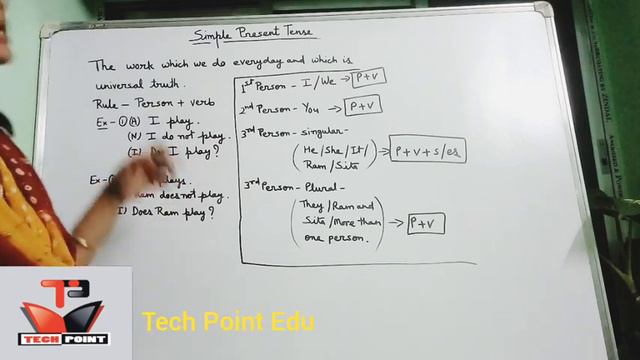 Simple Present Tense
The work which we do everyday and which is
universal truth.
Rule - Person + verb
Ex - ① (A) I play.
(N) I do not play.
(I) Do I play?
Ex - plays.
Ram does not play.
I) Does Ram play?
1st Person - I/We → P+V
2nd Person - You → P+V
3rd Person - singular -
(He/She/It/
Ram/Sita) → P+V+s/es
3rd Person - Plural -
(They/Ram and
Sita/More than
one person.) → P+V
TECH POINT
Tech Point Edu